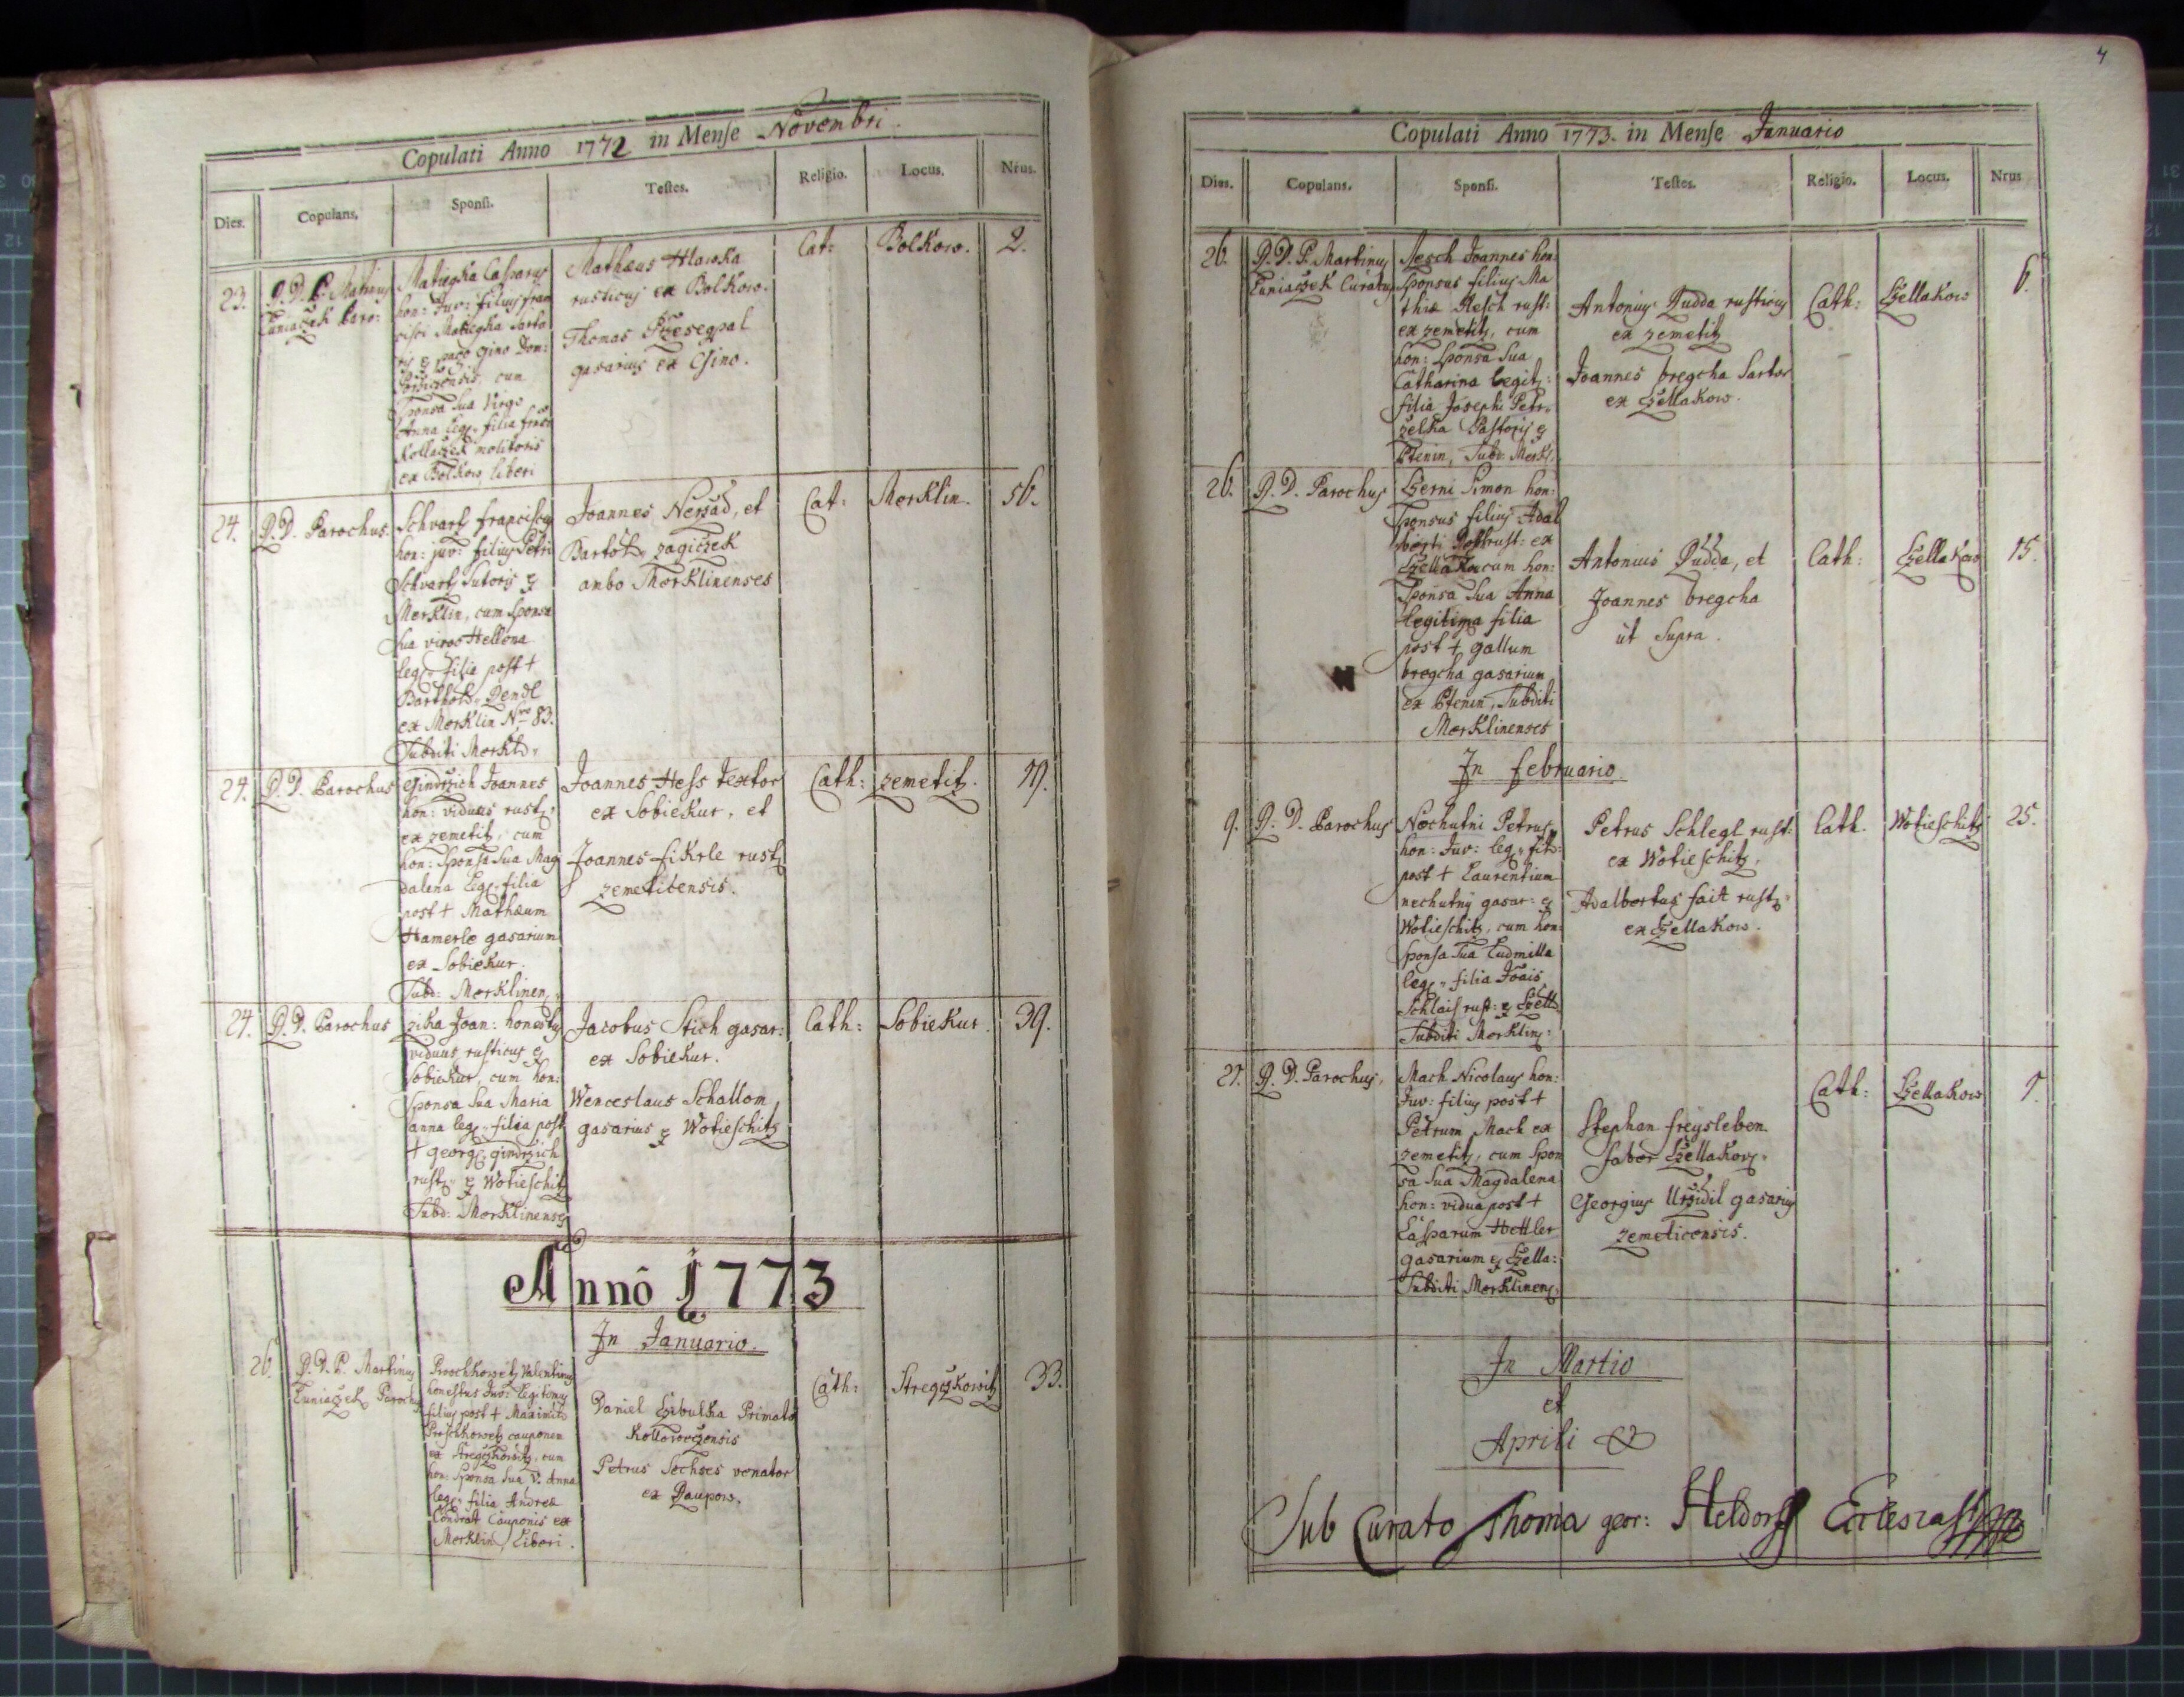 Copulati Anno 1772 in Mense Novembri.
Dies. Copulans. Sponsi. Testes. Religio. Locus. Nrus.
23.
Cuniaczek Paro:
Matiegka Casparus
hon: Juv: filius fran
cisci Matiegka Sarto
cum
Sponsa Sua Virgo
Anna leg. filia
Kollaczek molitoris
ex Bolkow liberi
Mathæus Hlawka
rusticus ex Bolkow.
Thomas
gasarius ex Gino.
Cat:
Bolkow.
2.
24.
D. D. Parochus.
Schvartz franciscus
hon: juv: filius Petri
Schvartz Sutoris ex
Merklin, cum Sponsa
Sua virgo Hellena
leg. filia post +
ex Merklin Nro 83.
Subditi Merkl.
Joannes Nerzad, et
Bartol. zagiczek
ambo Merklinenses
Cat:
Merklin.
56.
24.
D. D. Parochus
Gindrzich Joannes
hon: viduus rust.
ex zemetitz, cum
hon: Sponsa Sua Mag
dalena leg. filia
post + Mathæum
Hamerle gasarium
ex Sobiekur.
Subd: Merklinen.
Joannes Hess textor
ex Sobiekur, et
Joannes fikrle rust.
zemeticensis.
Cath:
zemetitz.
19.
24.
D. D. Parochus
zika Joan: honestus
viduus rusticus ex
Sobiekur, cum hon:
Sponsa Sua Maria
anna leg. filia post
+ georg. gindrzich
rust. ex Wotieschitz
Subd: Merklinenses
Jacobus Stich gasar:
ex Sobiekur.
Wenceslaus Schallom
gasarius ex Wotieschitz
Cath:
Sobiekur.
39.
Annô 1773
In Januario.
26.
D. D. P. Martinus
Cuniaczek Parochus
Prochkowetz Valentinus
honestus Juv: Legitimus
filius post + Maximil.
Proschkowetz cauponem
ex Stregczkowitz, cum
hon: Sponsa Sua V. Anna
leg. filia Andreæ
Condrat Cauponis ex
Merklin, Liberi.
Daniel Czibulka Primator
Petrus Sechses venator
ex Laupow.
Cath:
Stregczkowitz
33.
4
Copulati Anno 1773. in Mense Januario
Dies. Copulans. Sponsi. Testes. Religio. Locus. Nrus
26.
D. D. P. Martinus
Cuniaczek Curatus
Resch Joannes hon:
Sponsus filius Ma
thiæ Resch rust:
ex zemetitz, cum
hon: Sponsa Sua
Catharina legit:
filia Josephi Petr
zelka Pastoris ex
Ptenin, Subd: Merkl.
Antonius Dudda rusticus
ex zemetitz
Joannes bregcha Sartor
ex Czellakow.
Cath:
Czellakow
6.
26.
D. D. Parochus
Czerni Simon hon:
Sponsus filius Adal
rust: ex
cum hon:
Sponsa Sua Anna
legitima filia
post + gallum
bregcha gasarium
ex Ptenin, Subditi
Merklinenses
Antonius Dudda, et
Joannes bregcha
ut Supra.
Cath:
Czellakow
15.
In februario
9.
D. D. Parochus
Nechutni Petrus
hon: Juv: leg. fil:
post + Laurentium
nechutny gasar: ex
Wotieschitz, cum hon:
Sponsa Sua Ludmilla
leg. filia Joais
Subditi Merklin:
Petrus Schlegl rust:
ex Wotieschitz,
Adalbertus fait rust.
ex Czellakow.
Cath.
Wotieschitz
25.
D. D. Parochus,
Mach Nicolaus hon:
Juv: filius post +
Petrum Mach ex
zemetitz, cum Spon
sa Sua Magdalena
hon: vidua post +
Casparum Hettler
gasarium ex Czella:
Subditi Merklinen:
Stephan freysleben
faber Czellakov.
Georgius gasarius
zemeticensis.
Cath:
Czellakow
In Martio
et
Aprili
Sub Curato Thoma geor: